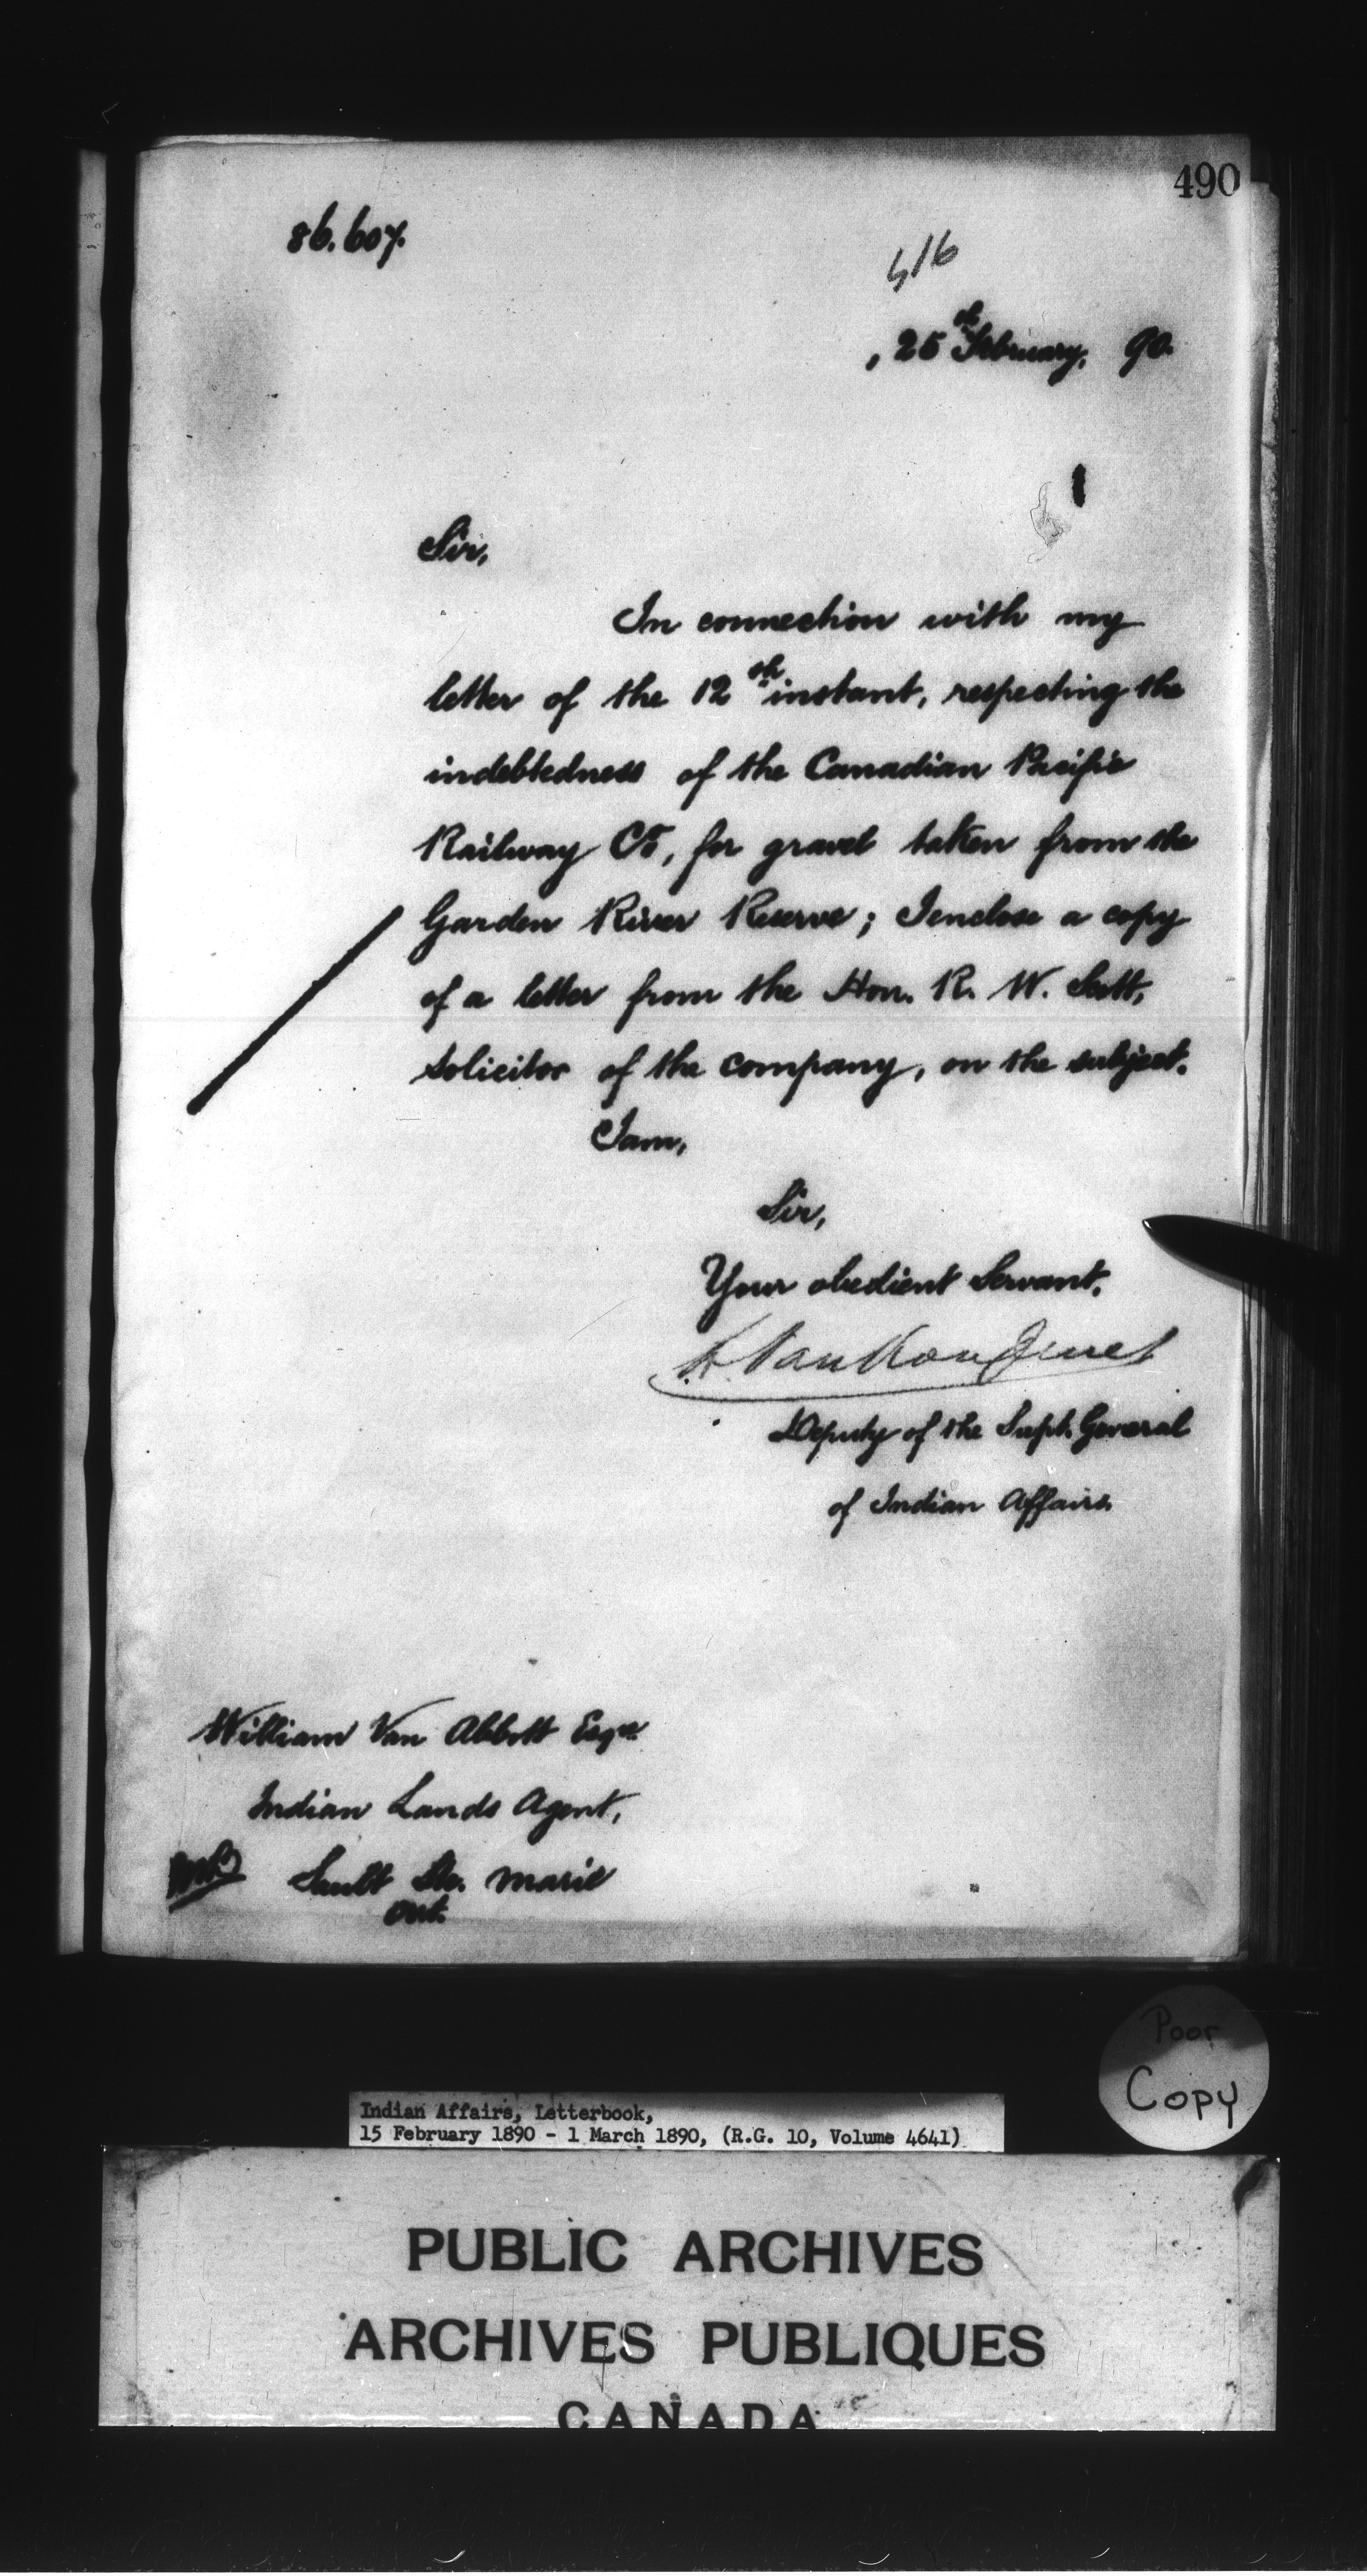 490
86.607.
416
, 25th February, 90.
Sir,
In connection with my
letter of the 12th instant, respecting the
indebtedness of the Canadian Pacific
Railway Co, for gravel taken from the
Garden River Reserve; I enclose a copy
of a letter from the Hon. R. W. Scott,
Solicitor of the company, on the subject.
I am,
Sir,
Your obedient Servant,
L. VanKoughnet
Deputy of the Supt. General
of Indian Affairs.
William Van Abbott Esqre.
Indian Lands Agent,
Sault Ste. Marie
Ont.
Poor
Copy
Indian Affairs, Letterbook,
15 February 1890 - 1 March 1890, (R.G. 10, Volume 4641)
PUBLIC ARCHIVES
ARCHIVES PUBLIQUES
CANADA